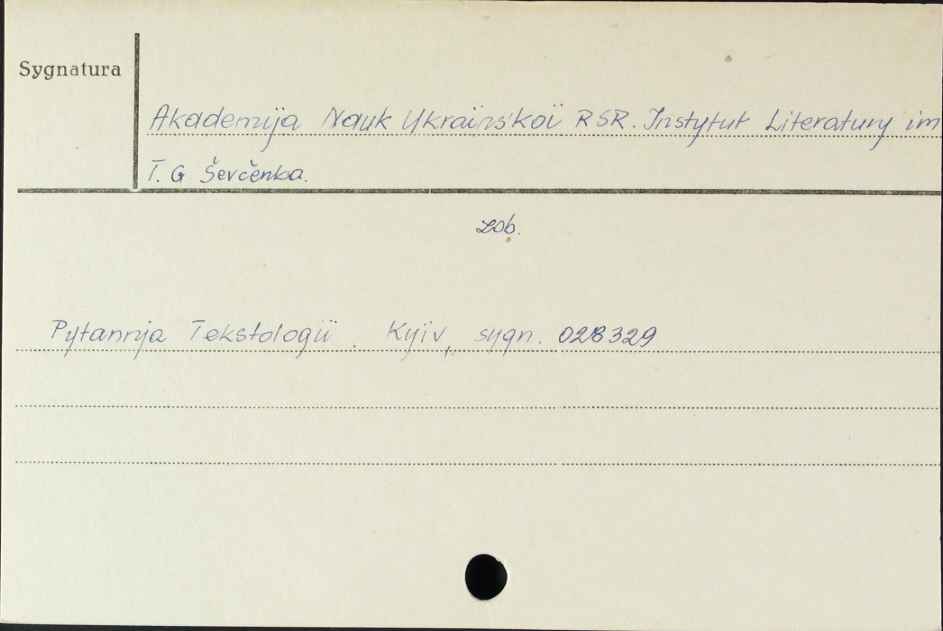 Sygnatura
Akademija Nauk Ukraïns'koï RSR. Instytut Literatury im
T. G Ševčenka.
zob.
Pytannja Tekstologiï. Kyïv, sygn. 028329